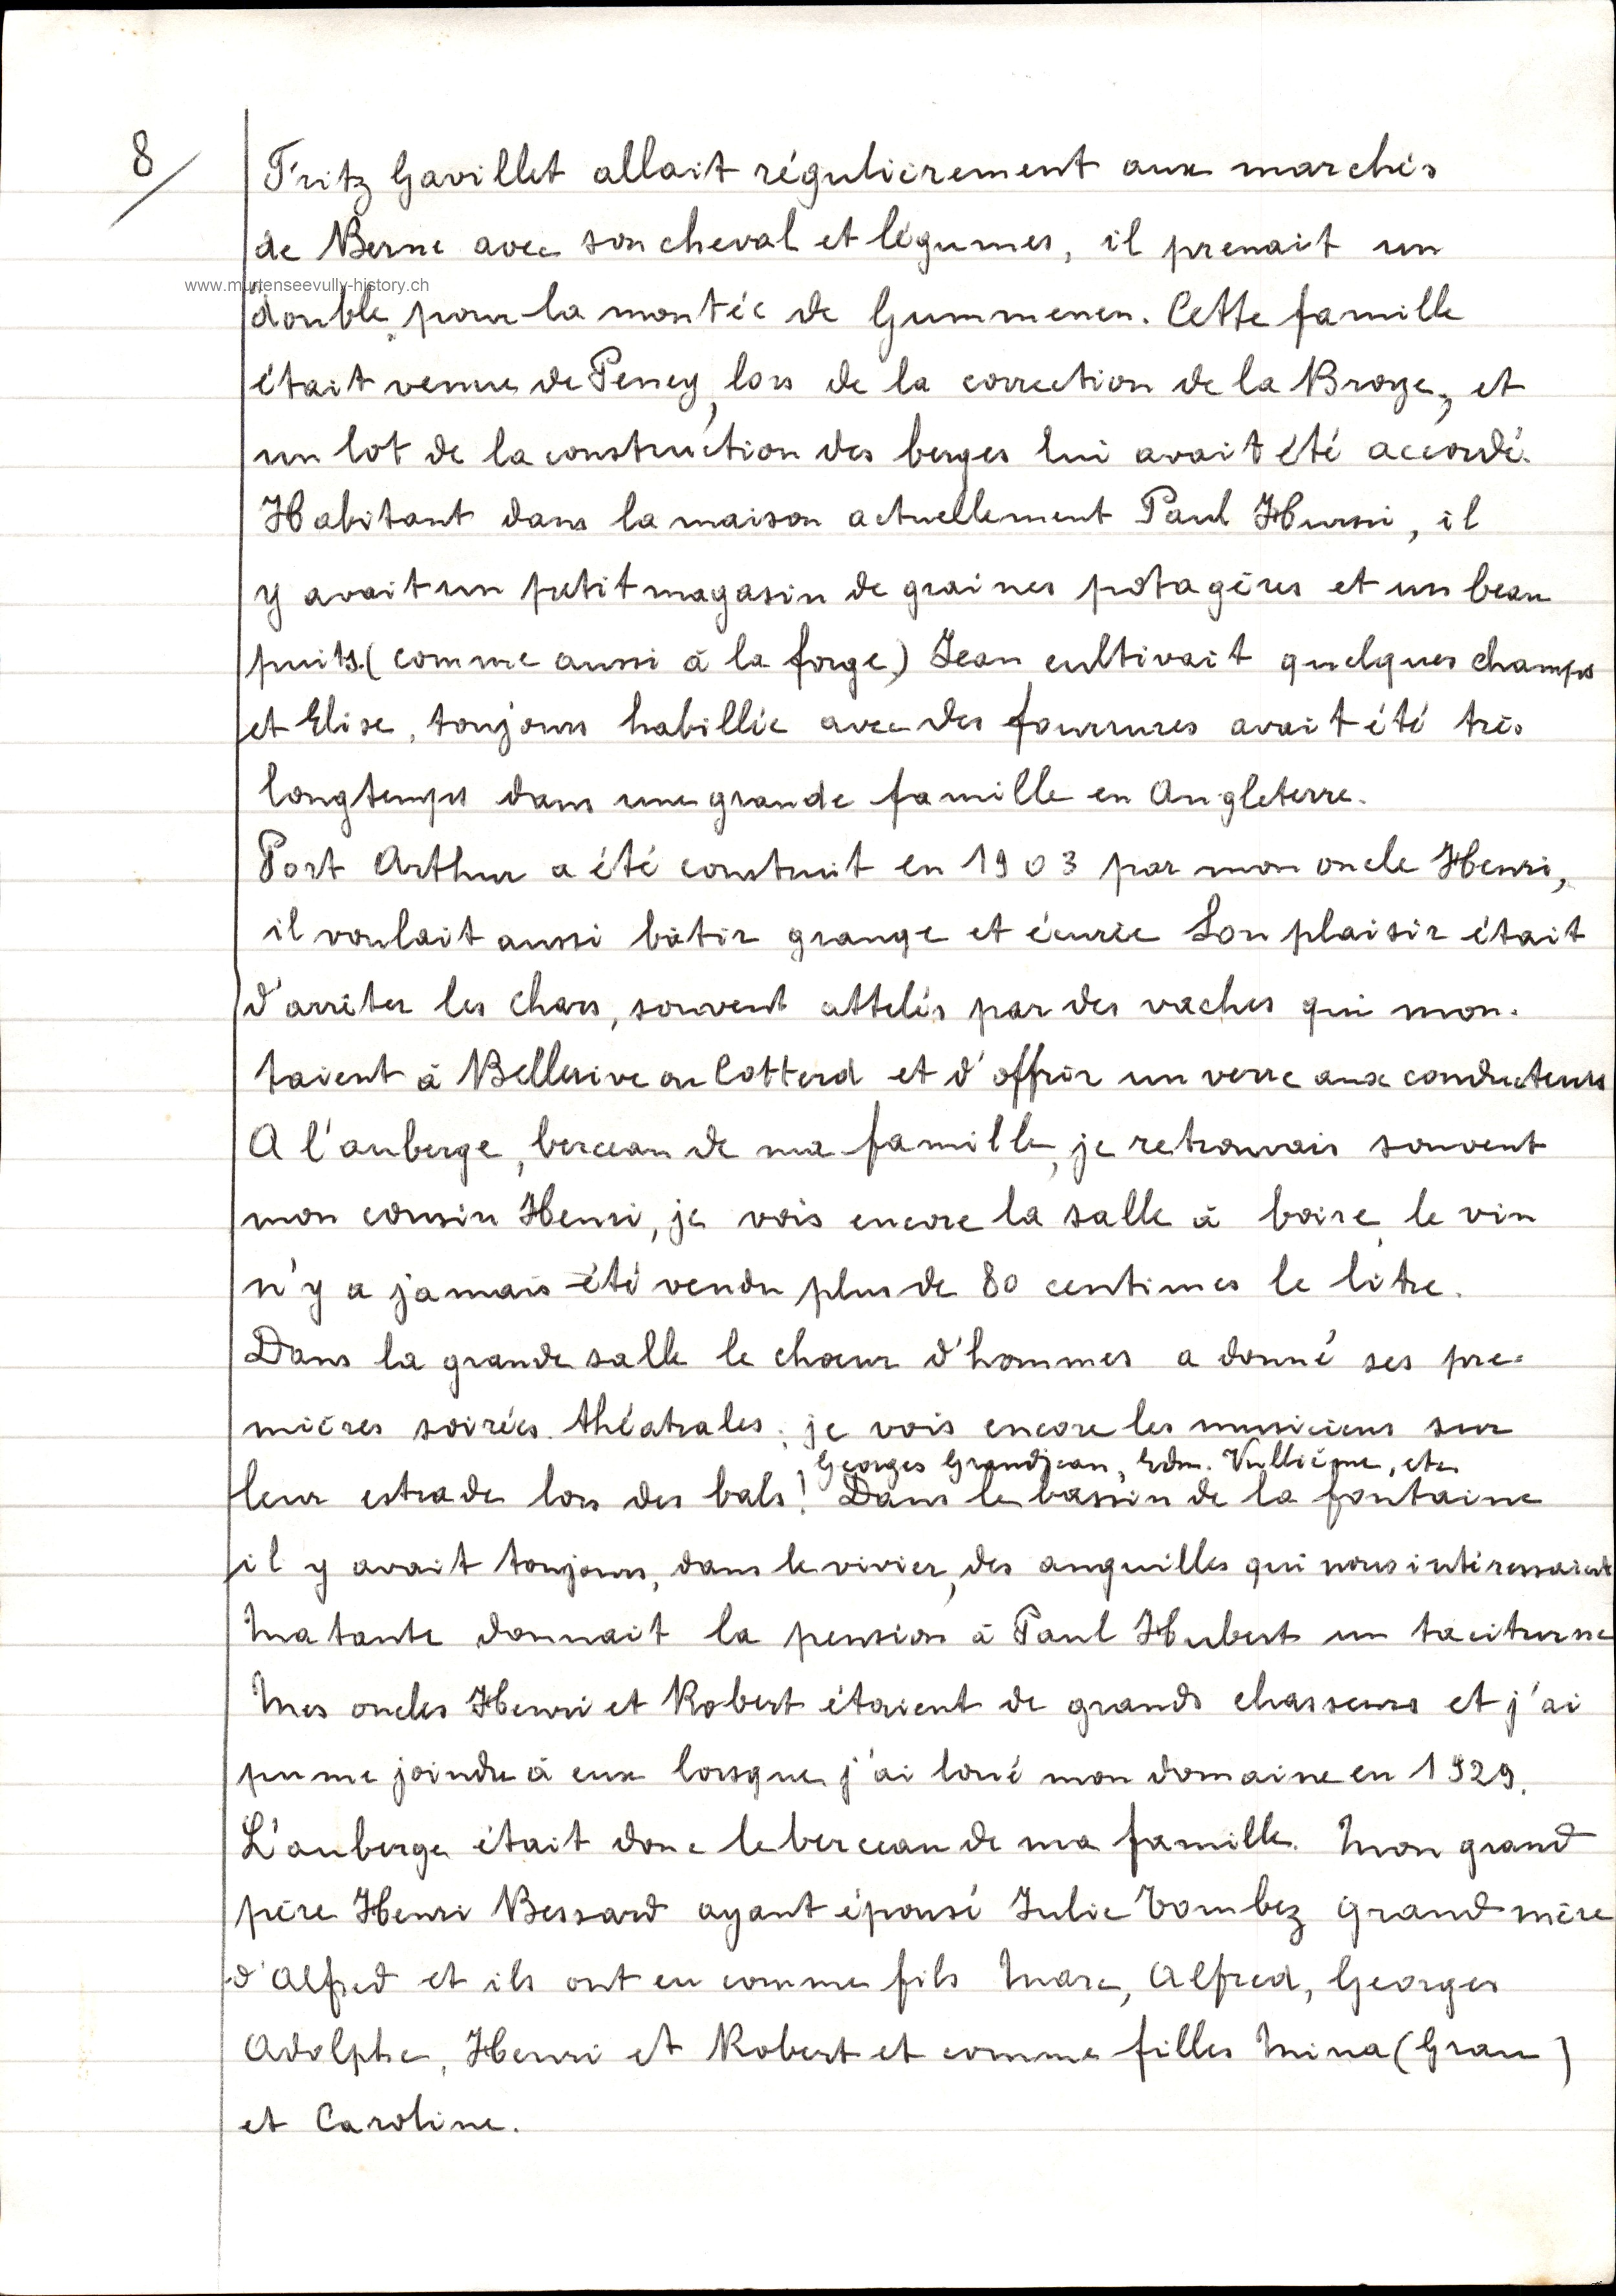 8/
Fritz Gavillet allait régulièrement aux marchés
de Berne avec son cheval et légumes, il prenait un
www.murtenseevully-history.ch
"double" pour la montée de Gummenen. Cette famille
était venue de Peney, lors de la correction de la Broye, et
un lot de la construction des berges lui avait été accordé.
Habitant dans la maison actuellement Paul Hurni, il
y avait un petit magasin de graines potagères et un beau
puits. (comme aussi à la forge) Jean cultivait quelques champs
et Elise, toujours habillée avec des fourrures avait été très
longtemps dans une grande famille en Angleterre.
Port Arthur a été construit en 1903 par mon oncle Henri,
il voulait aussi bâtir grange et écurie Son plaisir était
d'arrêter les chars, souvent attelés par des vaches qui mon-
taient à Bellerive ou Cotterd et d'offrir un verre aux conducteurs
A l'auberge, berceau de ma famille, je retrouvais souvent
mon cousin Henri, je vois encore la salle à boire, le vin
n'y a jamais été vendu plus de 80 centimes le litre.
Dans la grande salle le chœur d'hommes a donné ses pre-
mières soirées théatrales; je vois encore les musiciens sur
Georges Grandjean, Edm. Vullième, etc
leur estrade lors des bals! Dans le bassin de la fontaine
il y avait toujours, dans le vivier, des anguilles qui nous intéressaient
Ma tante donnait la pension à Paul Hubert un taciturne
Mes oncles Henri et Robert étaient de grands chasseurs et j'ai
pu me joindre à eux lorsque j'ai loué mon domaine en 1929.
L'auberge était donc le berceau de ma famille. Mon grand
père Henri Bessard ayant épousé Julie Tombez grand mère
d'Alfred et ils ont eu comme fils Marc, Alfred, Georges
Adolphe, Henri et Robert et comme filles Mina (Grau)
et Caroline.